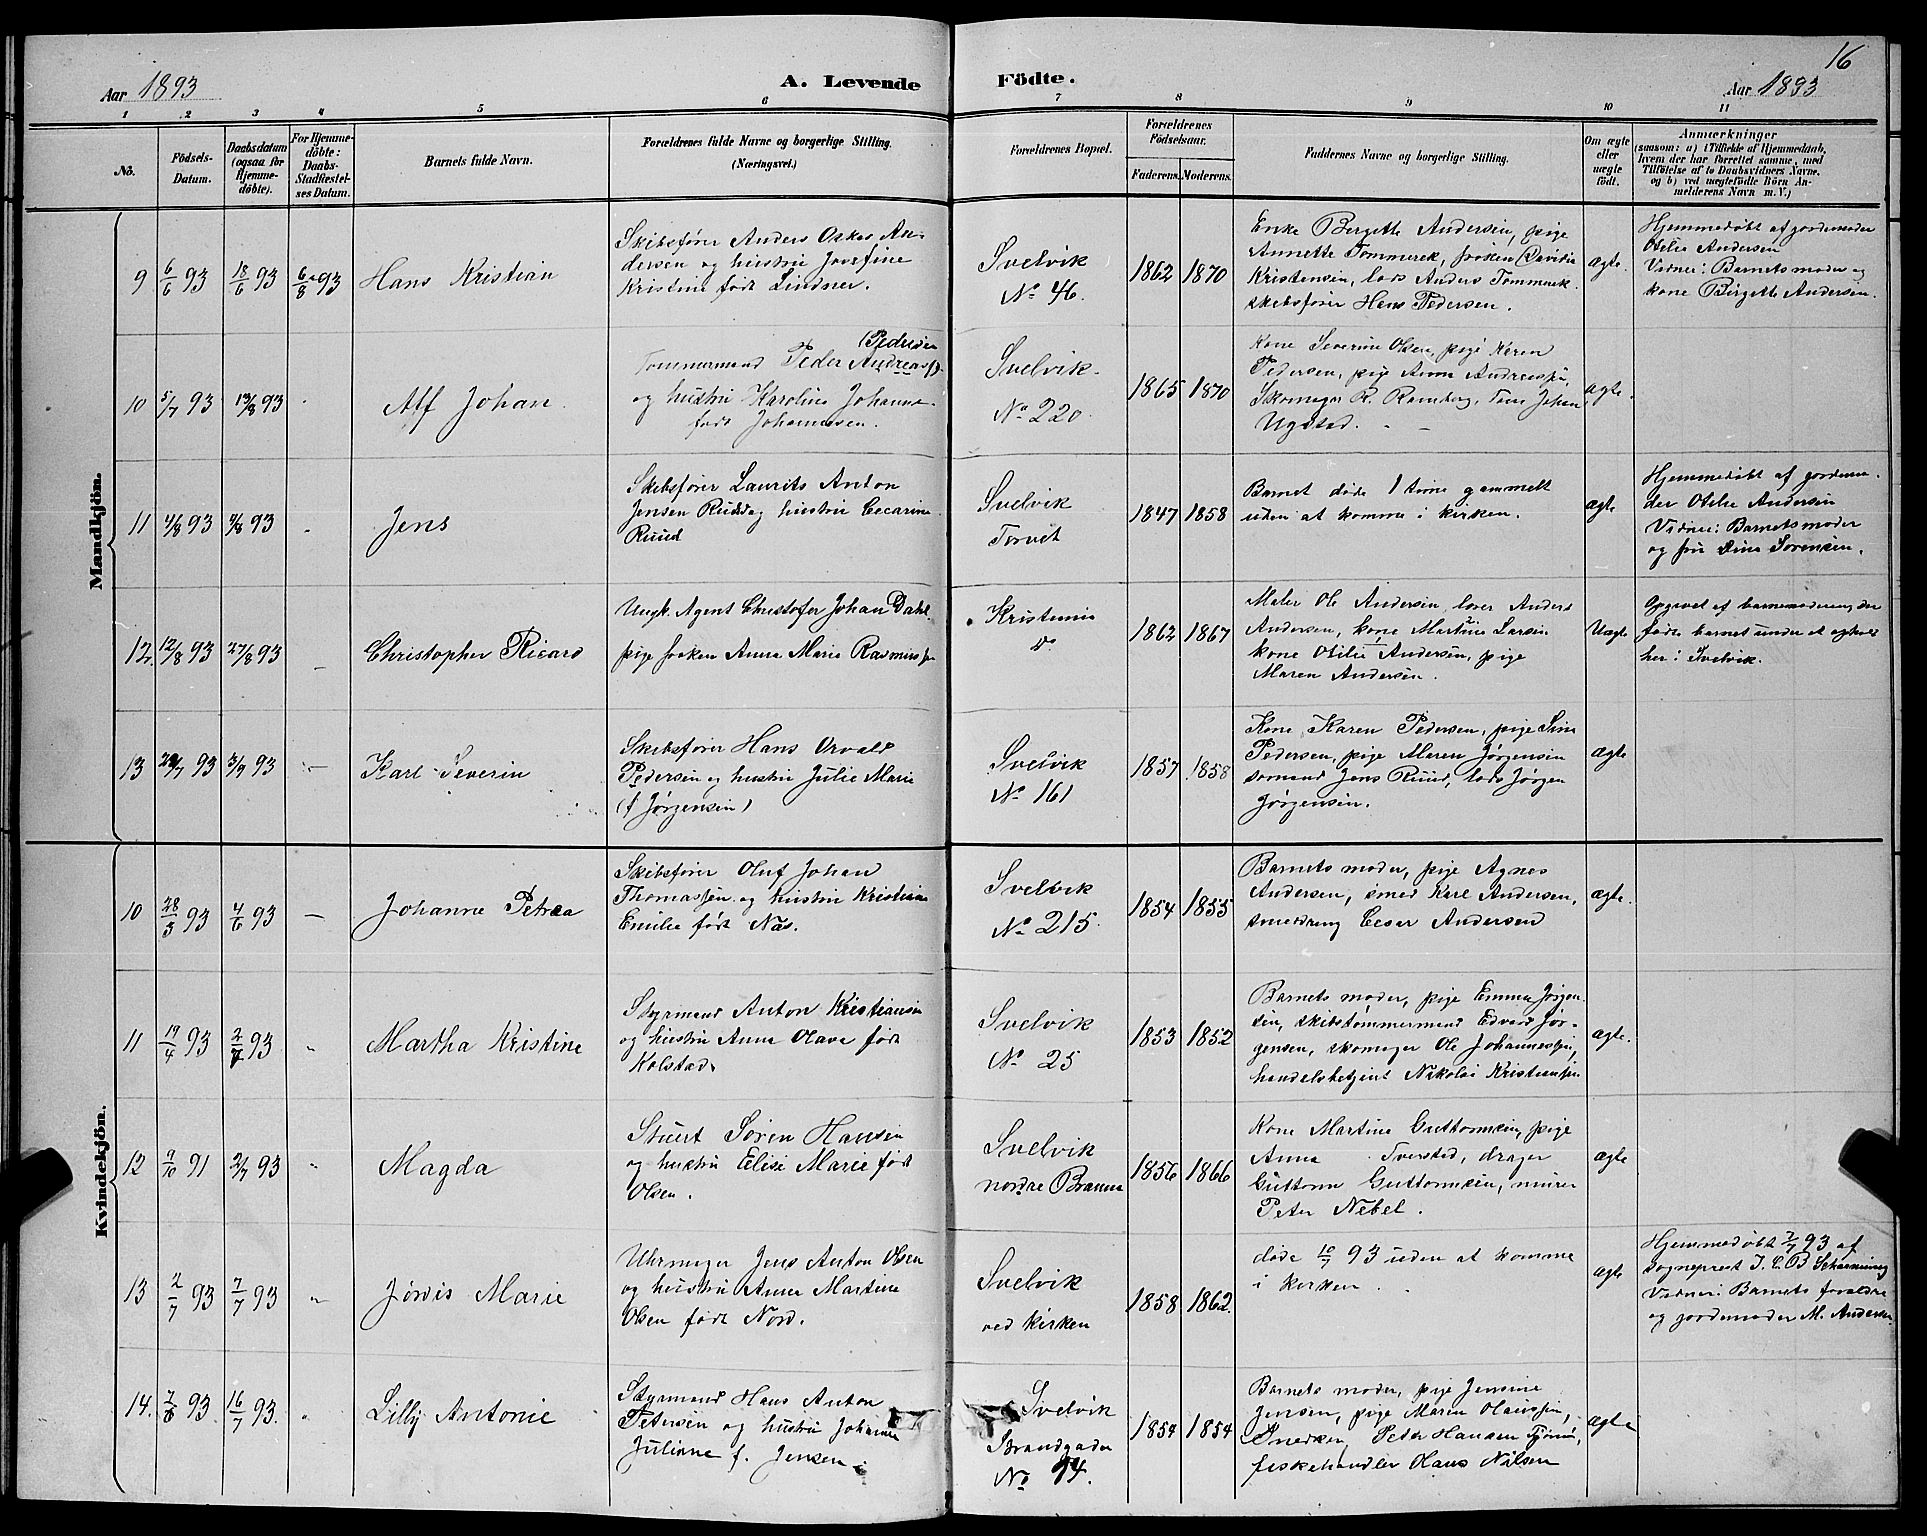 16
Aar 1893
A. Levende Födte.
Aar 1893
1 2 3 4 5 6 7 8 9 10 11
No.
Födsels-
Datum.
Daabsdatum
(ogsaa for
Hjemme-
döbte).
For Hjemme-
döbte:
Daabs-
Stadfæstel-
ses Datum.
Barnets fulde Navn.
Forældrenes fulde Navne og borgerlige Stilling.
(Næringsvei.)
Forældrenes Bopæl.
Forældrenes
Födselsaar.
Faderens. Moderens.
Faddernes Navne og borgerlige Stilling.
Om ægte
eller
uægte
födt.
Anmærkninger
(saasom: a) i Tilfælde af Hjemmedaab,
hvem der har forrettet samme, med
Tilföielse af to Daabsvidners Navne,
og b) ved uægtefödte Börn An-
melderens Navn m. V.)
Mandkjön.
9 6/6 93 18/6 93 6/8 93
Hans Kristian
Skibsfører Anders Oskar An-
dersen og hustru Josefine
Kristine født Lindner.
Svelvik
No 46.
1862 1870
Enke Bergitte Andersen, pige
Annette Tømmerek, frøken
Kristensen, lods Anders Tømmerek
skibsfører Hans Pedersen.
ægte.
Hjemmedøbt af gordemoder
Otilie Andersen
Vidner: Barnets moder og
kone Birgitte Andersen.
10 5/7 93 13/8 93
Alf Johan
(Pedersen
Tømmermand Peder Andreas
og hustru Karoline Johanne
født Johannesen.
Svelvik
No 220.
1865 1870
Kone Severine Olsen, pige Karen
Pedersen, pige Anna
Skomager R. Ramberg, Johan
Ugstad.
ægte.
11 4/8 93 4/8 93
Jens
Skibsfører Laurits Anton
Jensen Ruud og hustru Cecarine
Ruud
Svelvik
Torvet
1847 1858
Barnet døde 1 time gammelt
uden at komme i kirken.
ægte
Hjemmedøbt af gordemo-
der Otilie Andersen
Vidner: Barnets moder
og fru Lina Sørensen.
12 12/8 93 27/8 93
Christopher Ricard
Ungk. Agent Christofer Johan Dahl
pige frøken Anna Marie
Kristiania
do
1862 1867
Maler Ole Andersen, Anders
Andersen, kone Martine Larsen
kone Otilie Andersen, pige
Maren Andersen.
Uægte
Opgivet af barnemoderen, der
fødte barnet under et ophold
her i Svelvik.
13 93 3/9 93
Karl Severin
Skibsfører Hans Orvald
Pedersen og hustru Julie Marie
(f Jørgensen)
Svelvik
No 161
1857 1858
Kone Karen Pedersen, pige
Pedersen, pige Maren Jørgensen
sømand Jens Ruud, lods Jørgen
Jørgensen.
ægte
Kvindekjön.
10 28/3 93 4/6 93
Johanne Petrea
Skibsfører Oluf Johan
Thomassen og hustru Kristine
Emilie født Næs.
Svelvik
No 215.
1854 1855
Barnets moder, pige Agnes
Andersen, smed Karl Andersen,
smeddreng Cesar Andersen
ægte.
11 19/4 93 2/7 93
Martha Kristine
Styrmand Anton Kristiansen
og hustru Anna Olava født
Kolstad.
Svelvik
No 25
1853 1852
Barnets moder, pige Emma Jørgen-
sen, skibstømmermand Edvard Jør-
gensen, skomager Ole Johannessen,
handelsbetjent Nikolai Kristiansen
ægte.
12 9/10 91 2/7 93
Magda
Stuert Søren Hansen
og hustru Elise Marie født
Olsen.
Svelvik
nordre Brænna
1856 1866
Kone Martine Guttormsen, pige
Anna Tverstad, drager
Guttorm Guttormsen, murer
Peter Nebel.
ægte
13 2/7 93 7/7 93
Jørdis Marie
Uhrmager Jens Anton Olsen
og hustru Anna Martine
Olsen født Nord.
Svelvik
ved kirken
1858 1862.
døde 10/7 93 uden at komme
i kirken.
ægte
Hjemmedøbt 7/7 93 af
sogneprest J. C. B.
Vidner: Barnets forældre
og gordemoder M. Andersen
14. 7/6 93. 16/7 93.
Lilly Antonie
Styrmand Hans Anton
Petersen og hustru Johanne
Julianne f. Jensen.
Svelvik
Strandgaden
No 94.
1854 1854
Barnets moder, pige Jensine
Jensen, pige Maren Hanssen,
Snedker Peter Hansen
fiskehandler Hans Nilsen
ægte